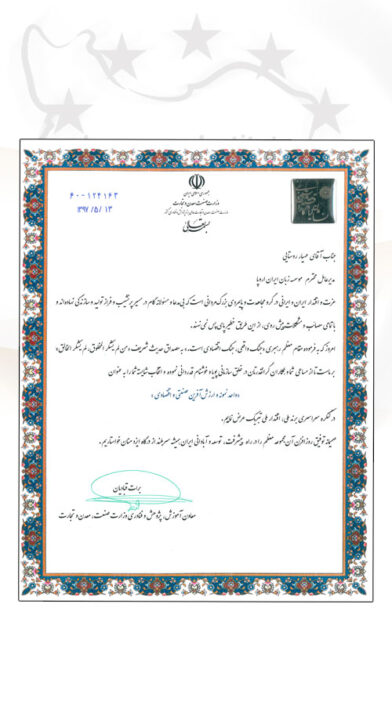 ۶۰-۱۲۴۱۶۳
۱۳۹۷/۵/۱۳
جمهوری اسلامی ایران
وزارت صنعت، معدن و تجارت
بسمه تعالی
جناب آقای مهیار روستایی
مدیرعامل محترم موسسه زبان ایران اروپا
عزت و اقتدار ایران و ایرانی در گرو مجاهدت و پایمردی بزرگ مردانی است که بی مدعا و مسئولانه گام در مسیر پر نشیب و فراز تولید و سازندگی نهاده اند و
با تمامی مصائب و مشکلات پیش روی، از این طریق خطیر پای پس نمی نهند.
امروز که به فرموده مقام معظم رهبری «جنگ واقعی، جنگ اقتصادی است»، به مصداق حدیث شریف «من لم یشکر المخلوق، لم یشکر الخالق»
برماست تا از مساعی شما و همکاران گرانقدرتان در خلق سازمانی پویا و خوشنام قدردانی نموده و انتخاب شایسته شما را به عنوان
«واحد نمونه و ارزش آفرین صنعتی و اقتصادی»
در کنگره سراسری برند ملی، اقتدار ملی تبریک عرض نماییم.
صمیمانه توفیق روزافزون آن مجموعه معظم را در راه پیشرفت، توسعه و آبادانی ایران همیشه سربلند از درگاه ایزد منان خواستاریم.
برات قبادیان
معاون آموزش، پژوهش و فناوری وزارت صنعت، معدن و تجارت